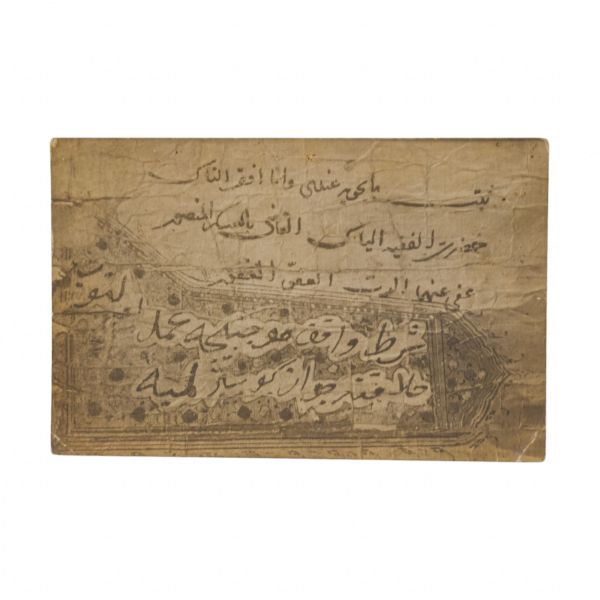 ثبت ما يحويه عندى وانا افقر الناس
حضرت الفقير الياس القاضى بالعسكر المنصور
عفى عنهما الرب العفو الغفور
شرط واقف موجبنجه عمل
خلافنه جواز كوسترلميه